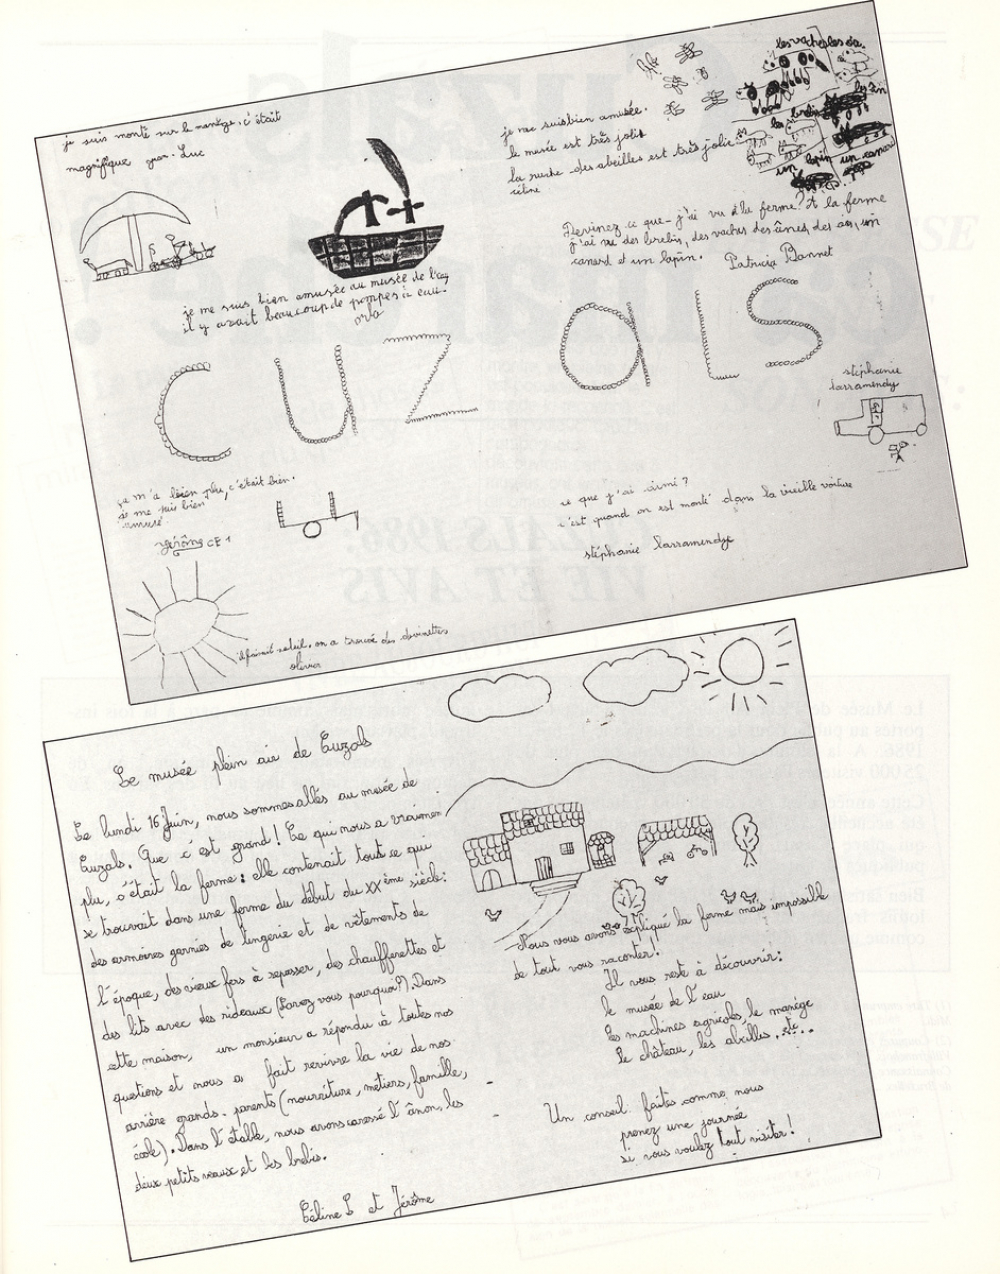 je suis monté sur le manège, c'était
magnifique Luc
je me suis bien amusée.
le musée est très joli
la ruche des abeilles est très jolie
céline
les vaches
les brebis
un lapin un canard
Devinez ce que j'ai vu à la ferme? A la ferme
j'ai vu des brebis, des vaches des ânes, des oes, un
canard et un lapin. Patricia Bonnet
je me suis bien amusée au musée de l'eau
il y avait beaucoup de pompes à eau.
cuzals
stéphanie
larramendy
ça m'a bien plu, c'était bien.
je me suis bien
amusé
jérôme CE1
ce que j'ai aimé?
c'est quand on est monté dans la vieille voiture
stéphanie larramendy
il faisait soleil. on a trouvé des devinettes
olivier
Le musée plein air de Cuzals
Le lundi 16 Juin, nous sommes allés au musée de
Cuzals. Que c'est grand! Ce qui nous a vraiment
plu, c'était la ferme: elle contenait tout ce qui
se trouvait dans une ferme du début du XXème siècle:
des armoires garnies de lingerie et de vêtements de
l'époque, des vieux fers à repasser, des chaufferettes et
des lits avec des rideaux (Savez vous pourquoi?). Dans
cette maison, un monsieur a répondu à toutes nos
questions et nous a fait revivre la vie de nos
arrière grands-parents (nourriture, métiers, famille,
école). Dans l'étable, nous avons caressé l'ânon, les
deux petits veaux et les brebis.
Céline L et Jérôme
Nous vous avons expliqué la ferme mais impossible
de tout vous raconter!
Il vous reste à découvrir:
le musée de l'eau
les machines agricoles, le manège
le château, les abeilles, etc...
Un conseil faites comme nous
prenez une journée
si vous voulez tout visiter!